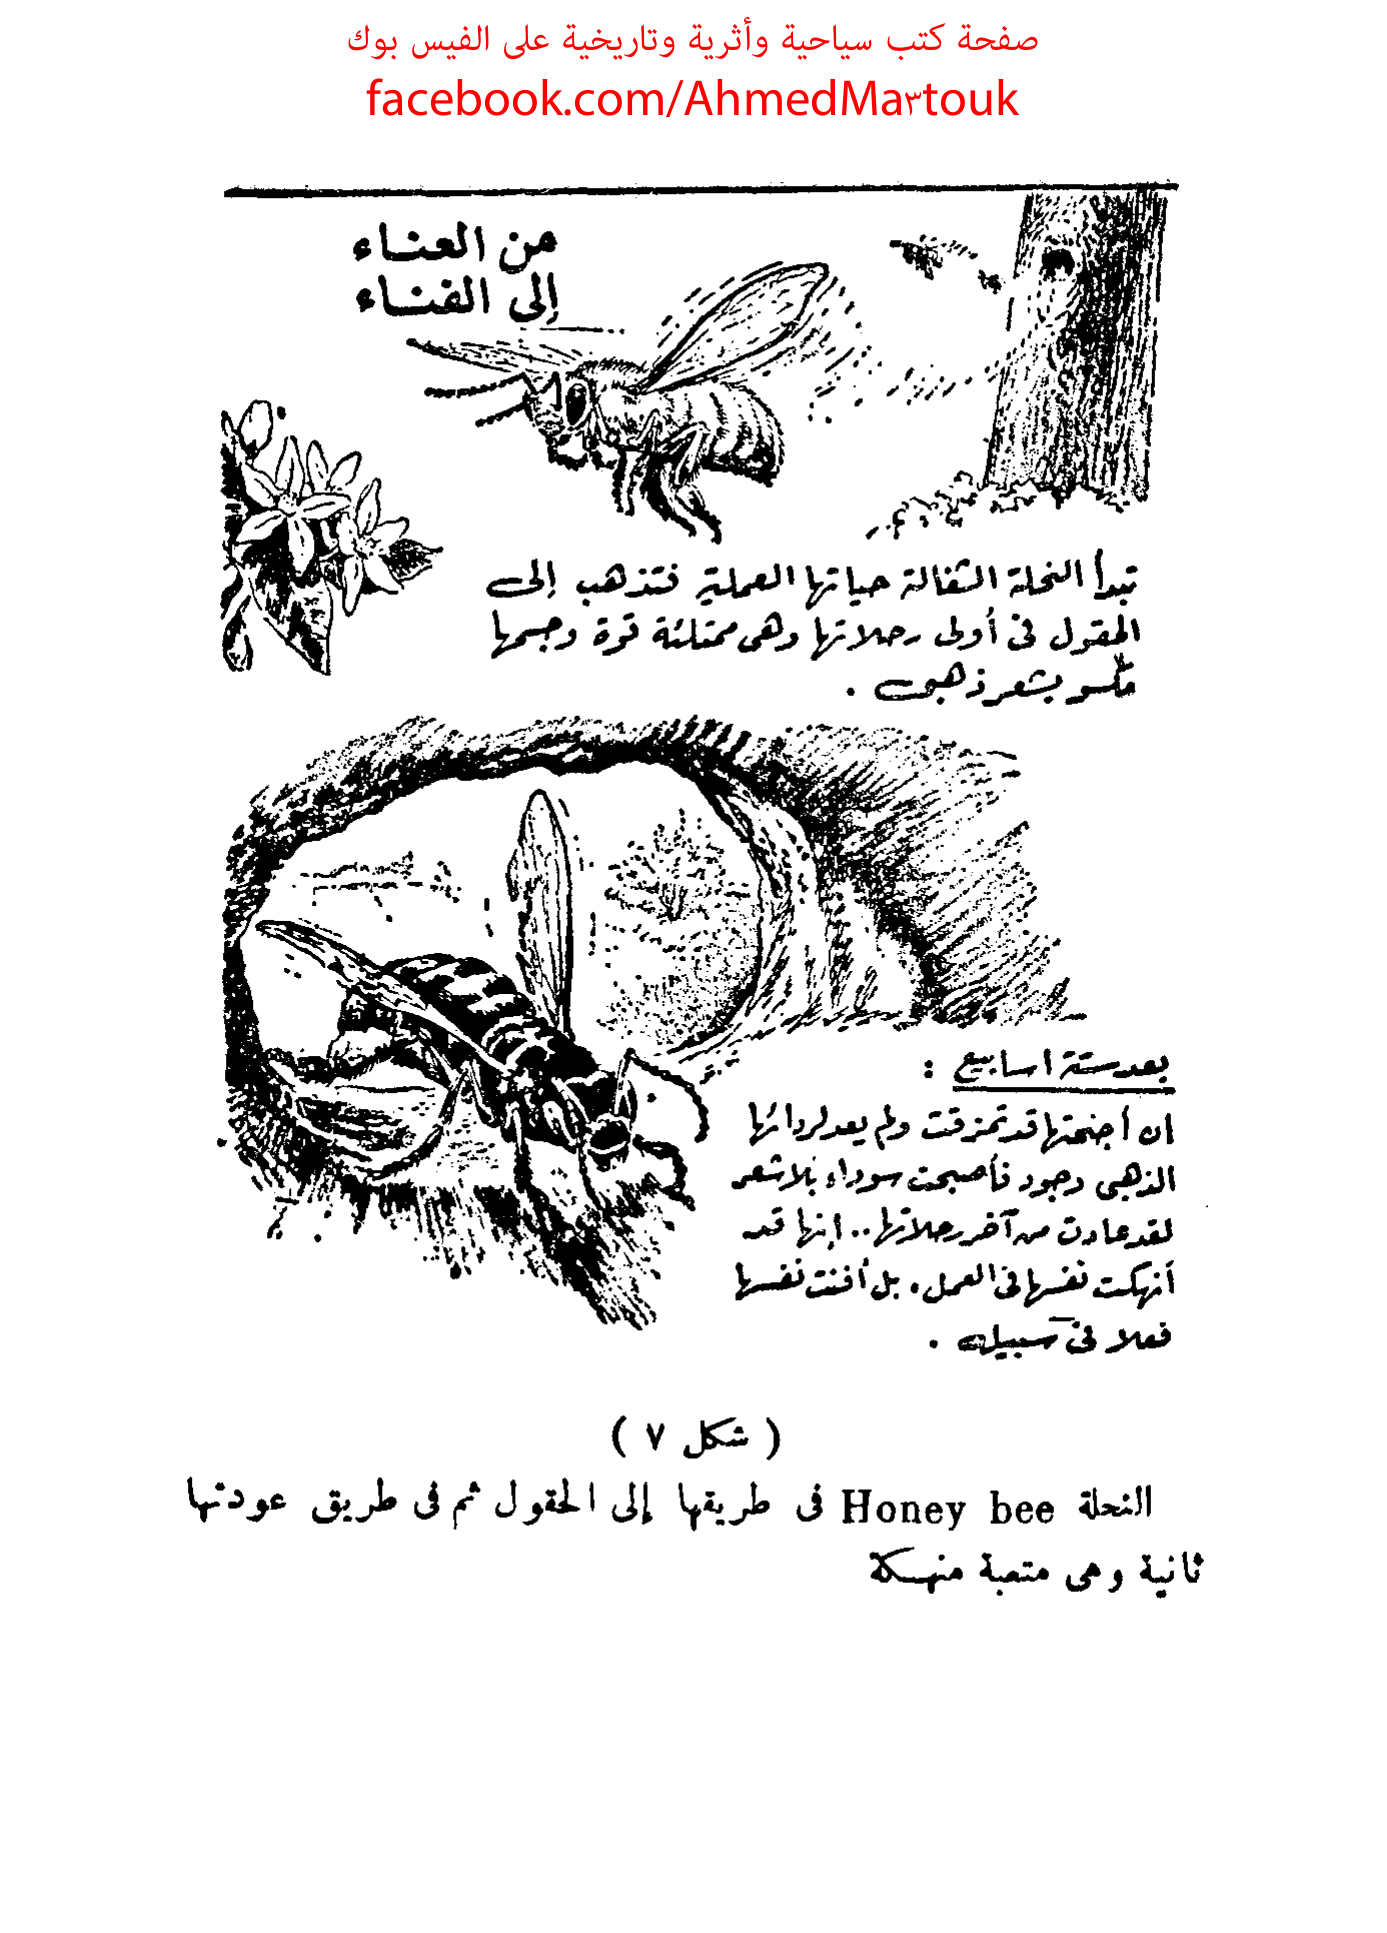 صفحة كتب سياحية وأثرية وتاريخية على الفيس بوك
facebook.com/AhmedMa٣touk
من العناء
إلى الفناء
تبدأ النحلة الشغالة حياتها العملية فتذهب إلى
الحقول فى أولى رحلاتها وهى ممتلئة قوة وجسمها
مكسو بشعر ذهبى .
بعد ستة اسابيع :
ان أجنحتها قد تمزقت ولم يعد لردائها
الذهبى وجود فأصبحت سوداء بلا شعر
لقد عادت من آخر رحلاتها .. إنها قد
أنهكت نفسها فى العمل . بل أفنت نفسها
فعلا فى سبيله .
( شكل ٧ )
النحلة Honey bee فى طريقها إلى الحقول ثم فى طريق عودتها
ثانية وهى متعبة منهكة